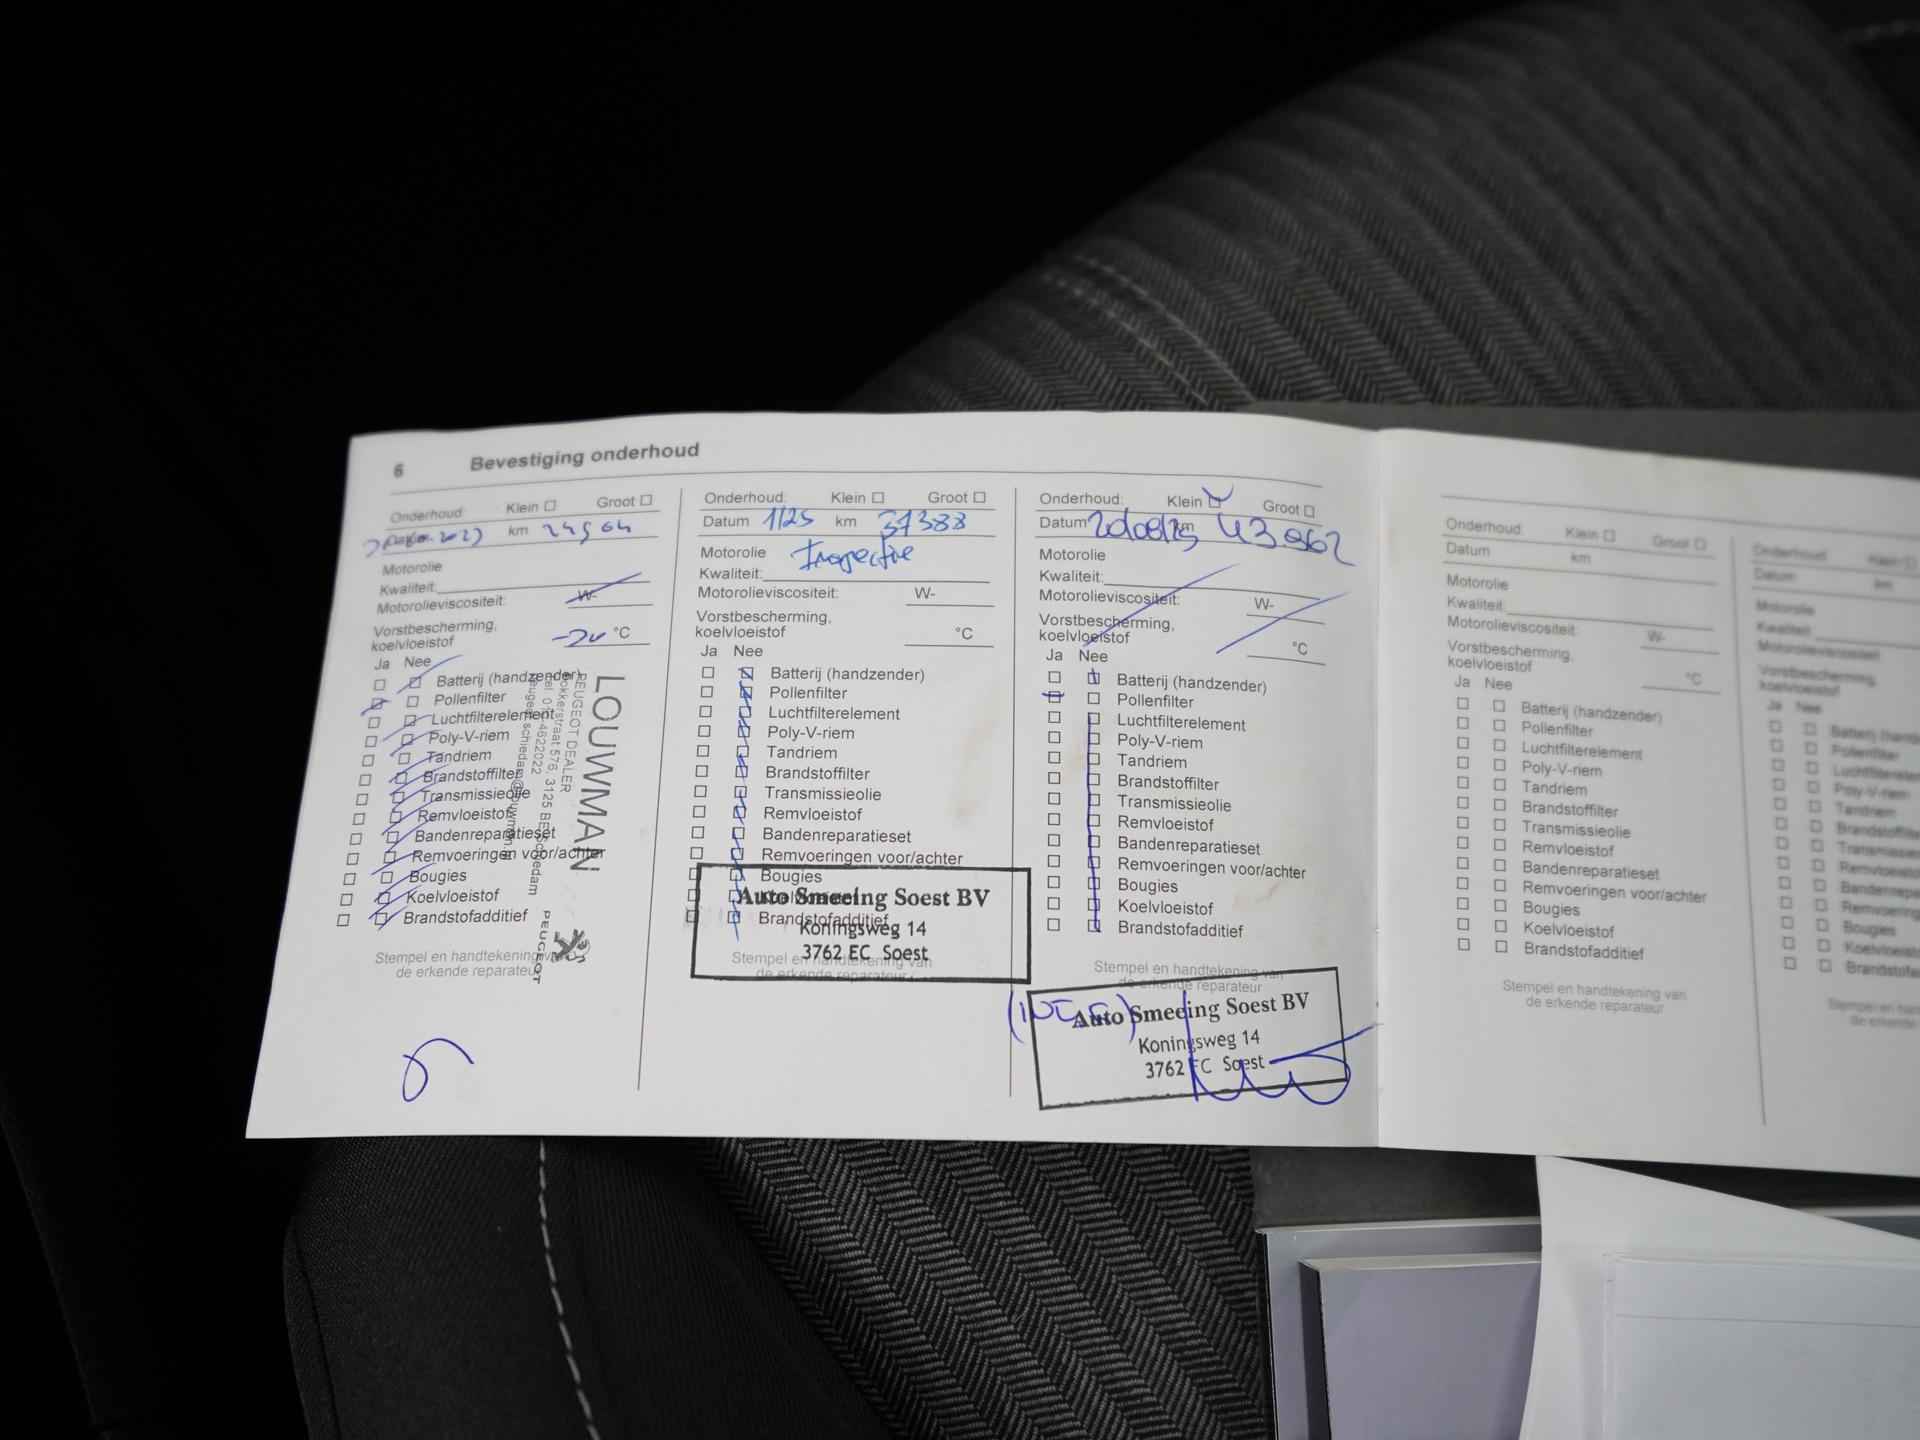 6 Bevestiging onderhoud
Onderhoud: Klein Groot
km 24504
Motorolie
Kwaliteit:
Motorolieviscositeit: W-
Vorstbescherming,
koelvloeistof °C
Ja Nee
Batterij (handzender)
Pollenfilter
Luchtfilterelement
Poly-V-riem
Tandriem
Brandstoffilter
Transmissieolie
Remvloeistof
Bandenreparatieset
Remvoeringen voor/achter
Bougies
Koelvloeistof
Brandstofadditief
Stempel en handtekening van
de erkende reparateur
LOUWMAN
PEUGEOT DEALER
PEUGEOT
Onderhoud: Klein Groot
Datum 1/25 km 37388
Motorolie Inspectie
Kwaliteit:
Motorolieviscositeit: W-
Vorstbescherming,
koelvloeistof °C
Ja Nee
Batterij (handzender)
Pollenfilter
Luchtfilterelement
Poly-V-riem
Tandriem
Brandstoffilter
Transmissieolie
Remvloeistof
Bandenreparatieset
Remvoeringen voor/achter
Bougies
Koelvloeistof
Brandstofadditief
Stempel en handtekening van
de erkende reparateur
Auto Smeeing Soest BV
Koningsweg 14
3762 EC Soest
Onderhoud: Klein Groot
Datum 20/08/25 km 43.962
Motorolie
Kwaliteit:
Motorolieviscositeit: W-
Vorstbescherming,
koelvloeistof °C
Ja Nee
Batterij (handzender)
Pollenfilter
Luchtfilterelement
Poly-V-riem
Tandriem
Brandstoffilter
Transmissieolie
Remvloeistof
Bandenreparatieset
Remvoeringen voor/achter
Bougies
Koelvloeistof
Brandstofadditief
Stempel en handtekening van
de erkende reparateur
Auto Smeeing Soest BV
Koningsweg 14
3762 EC Soest
Onderhoud: Klein Groot
Datum km
Motorolie
Kwaliteit:
Motorolieviscositeit: W-
Vorstbescherming,
koelvloeistof °C
Ja Nee
Batterij (handzender)
Pollenfilter
Luchtfilterelement
Poly-V-riem
Tandriem
Brandstoffilter
Transmissieolie
Remvloeistof
Bandenreparatieset
Remvoeringen voor/achter
Bougies
Koelvloeistof
Brandstofadditief
Stempel en handtekening van
de erkende reparateur
Onderhoud: Klein
Datum km
Motorolie
Kwaliteit:
Motorolieviscositeit:
Vorstbescherming,
koelvloeistof
Ja Nee
Pollenfilter
Poly-V-riem
Tandriem
Bougies